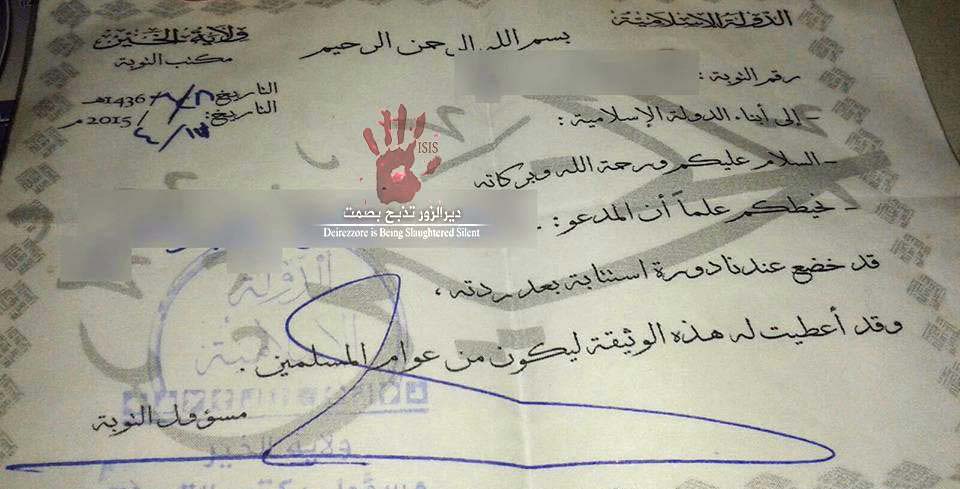 الدولة الإسلامية
ولاية الخير
مكتب التوبة
بسم الله الرحمن الرحيم
التاريخ: / / 1436هـ
التاريخ: ١٧ / ٤ / 2015م
رقم التوبة :
- إلى أبناء الدولة الإسلامية :
- السلام عليكم ورحمة الله وبركاته
- نحيطكم علماً أن المدعو :
قد خضع عندنا دورة استتابة بعد ردته ،
وقد أعطيت له هذه الوثيقة ليكون من عوام المسلمين .
مسؤول التوبة
ISIS
ديرالزور تذبح بصمت
Deirezzore is Being Slaughtered Silent
الدولة
الإسلامية
ولاية الخير